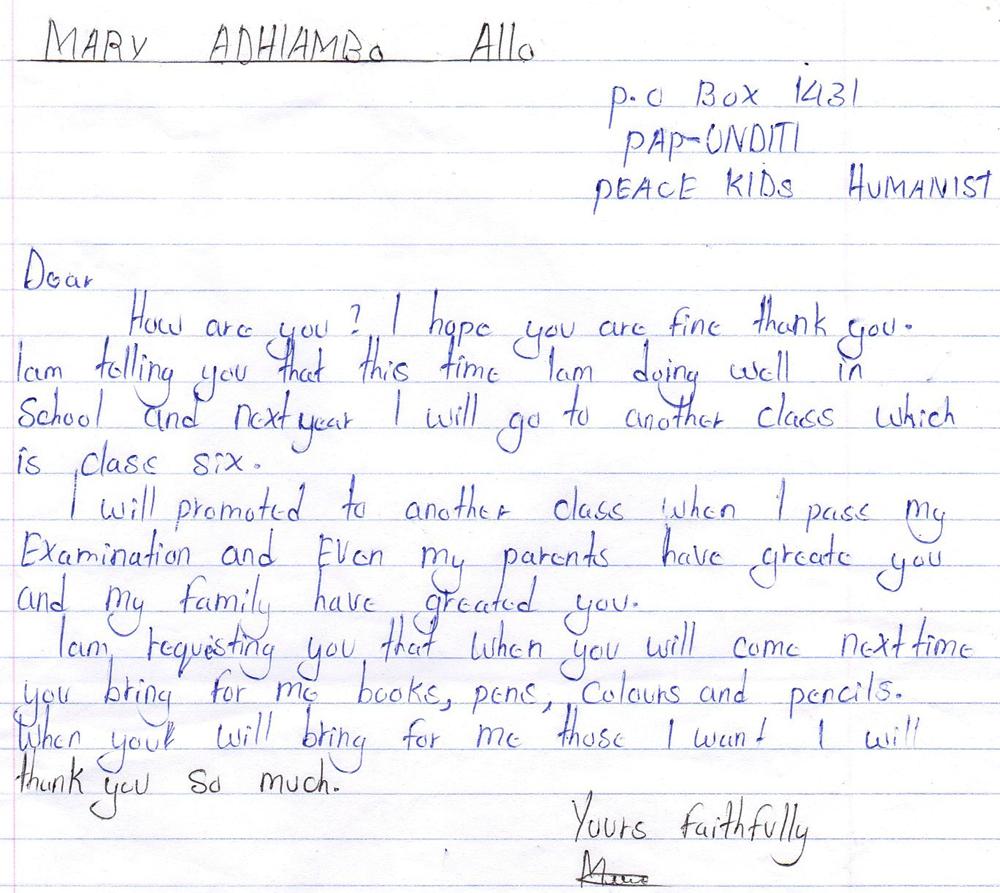 MARY ADHIAMBo Allo
P.O BOX 1431
PAP-ONDITI
PEACE KIDS HUMANIST
Dear
How are you? I hope you are fine thank you.
Iam telling you that this time Iam doing well in
School and next year I will go to another class which
is class six.
I will promoted to another class when I pass my
Examination and Even my parents have greate you
and my family have greated you.
Iam requisting you that when you will come next time
you bring for me books, pens, Colours and pencils.
When your will bring for me those I want I will
thank you so much.
Yours faithfully